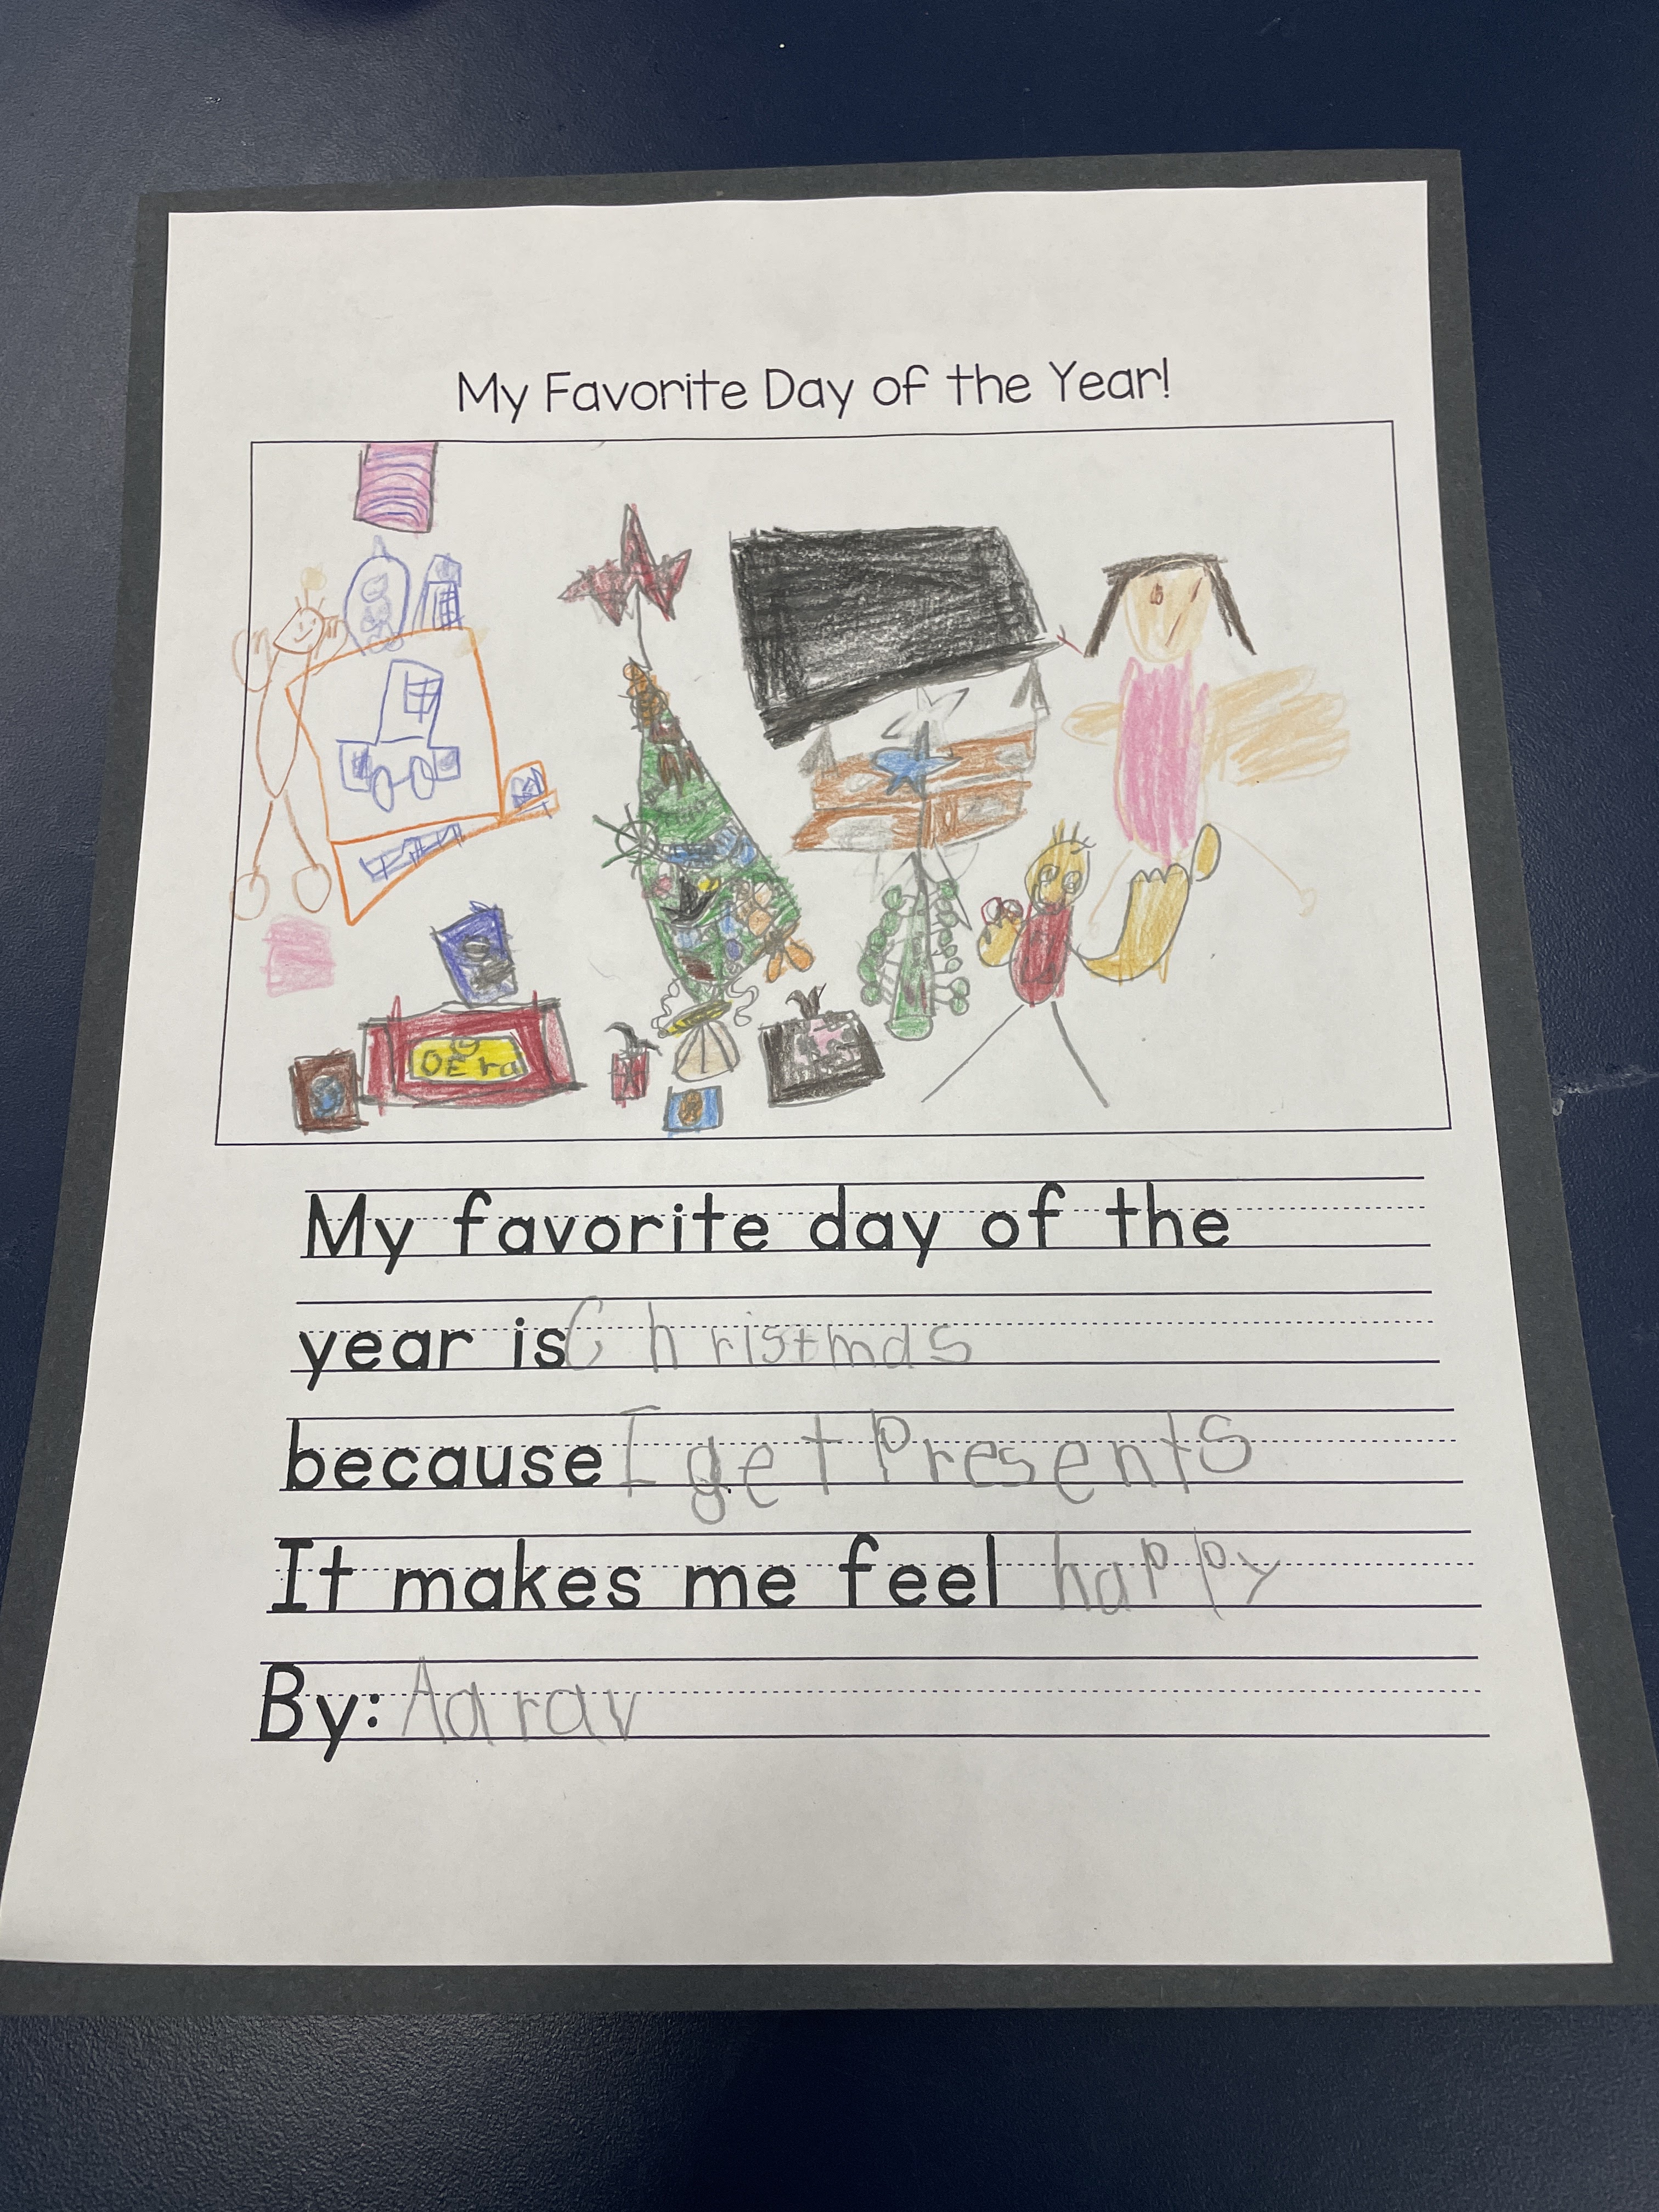 My Favorite Day of the Year!
My favorite day of the
year is Christmas
because I get Presents
It makes me feel happy
By: Aarav